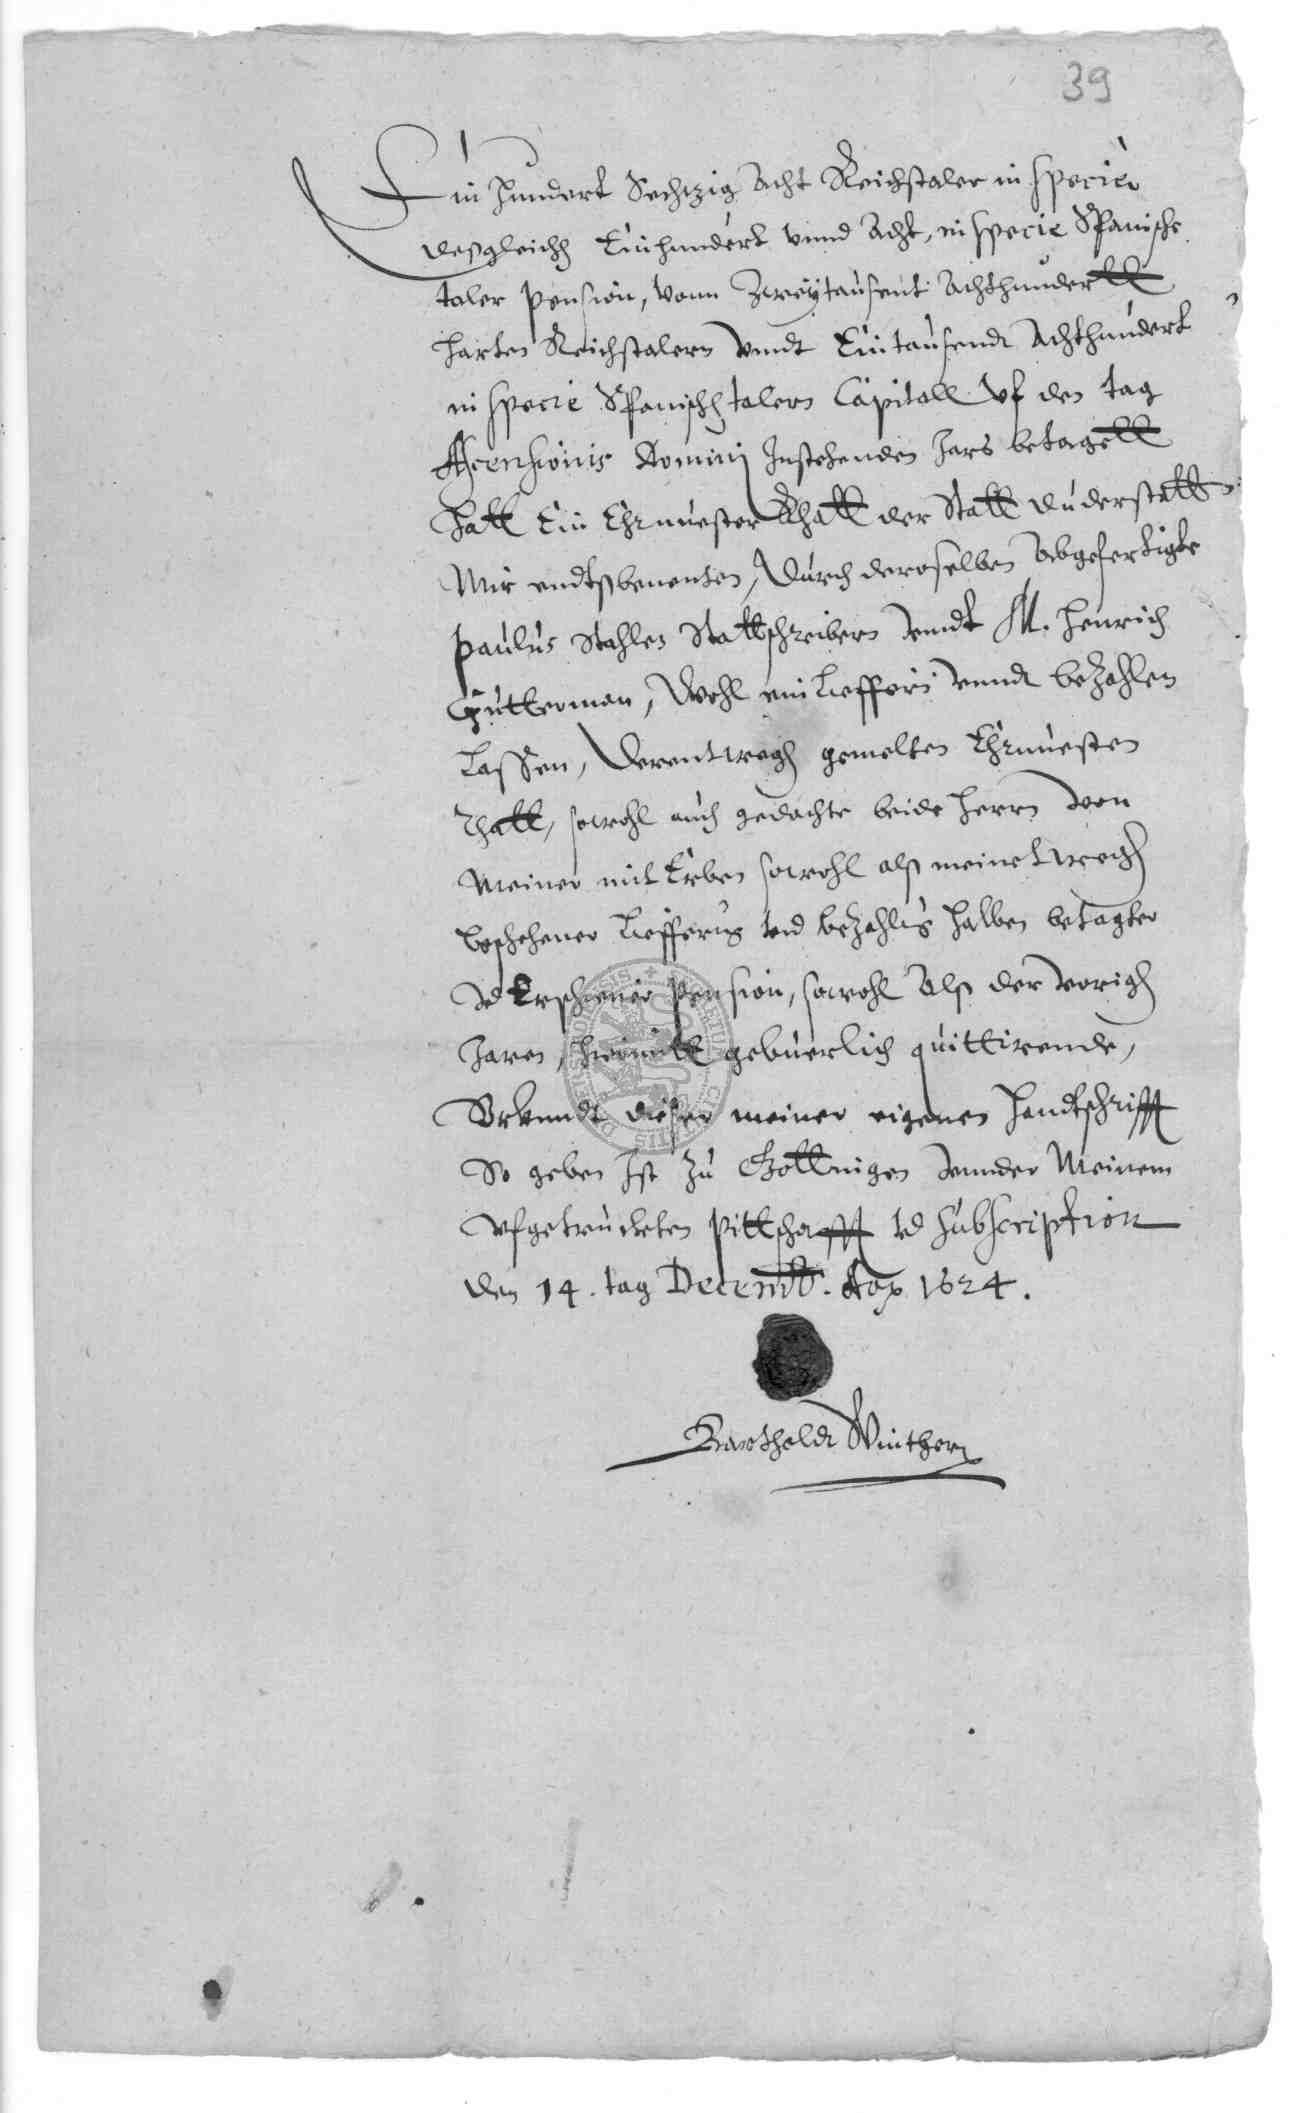 39
Ein Hundert Sechtzig Acht Reichstaler in specie
deßgleichen Einhundert vnnd Acht, in specie Spanische
taler pension, vonn Zweytausent Achthundertt
harten Reichstalern vnndt Eintausendt Achthundert
in specie Spanischen talern Capitall Vf den tag
Ascensionis Domini Instehenden Jars betagett
Hatt Ein Ehrnuester Rhatt der Statt Duderstatt
Mir endtsbenenten, Durch deroselben Abgefertigte
Paulus Stahlen Stattschreibern vnndt M. Henrich
Gutterman, Wohl einlieffern vnndt bezahlen
Lassen, Derentwegen gemelten Ehrnuesten
Rhatt, sowohl auch gedachte beide Herrn von
Meiner mit Erben sowohl alß meinetwegen
beschehener Liefferung vnd bezahlung halben betagter
vnd Erschiener Pension, sowohl Alß der vorigen
Jaren, hiermitt gebuerlich quittirende,
Vrkundt dieser meiner eigenen Handtschrifft
So geben Ist zu Gottingen vnnder Meinem
vfgetruckten Pittschafft vnd subscription
den 14. tag Decemb. Ao 1624.
Bartholdt Winthern